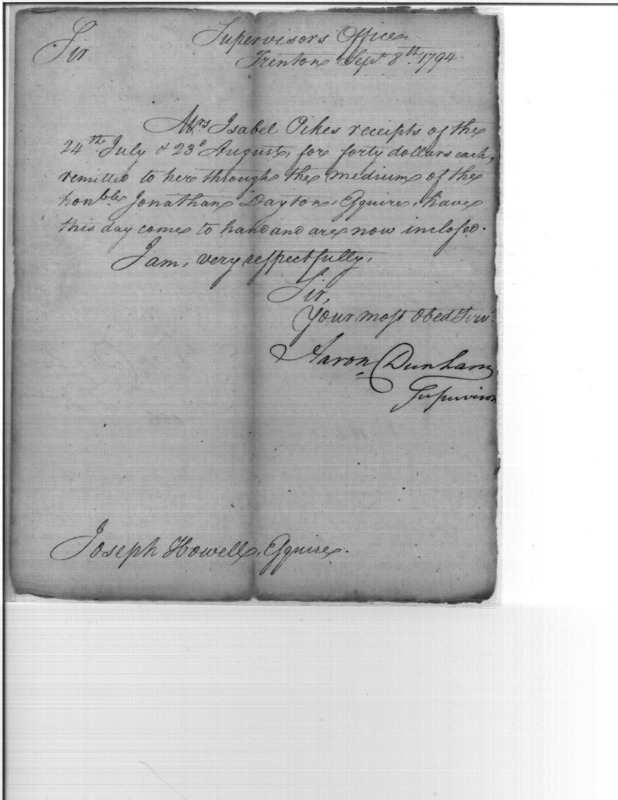 Supervisors Office
Sir Trenton Sept. 8th. 1794.
Mrs Isabel Pikes receipts of the
24th July & 23d August, for forty dollars each,
remitted to her through the medium of the
honble Jonathan Dayton, Esquire, have
this day come to hand and are now inclosed.
I am, very respectfully,
Sir,
Your most Obed Serv.
Aaron Dunham
Supervisor
Joseph Howell, Esquire.